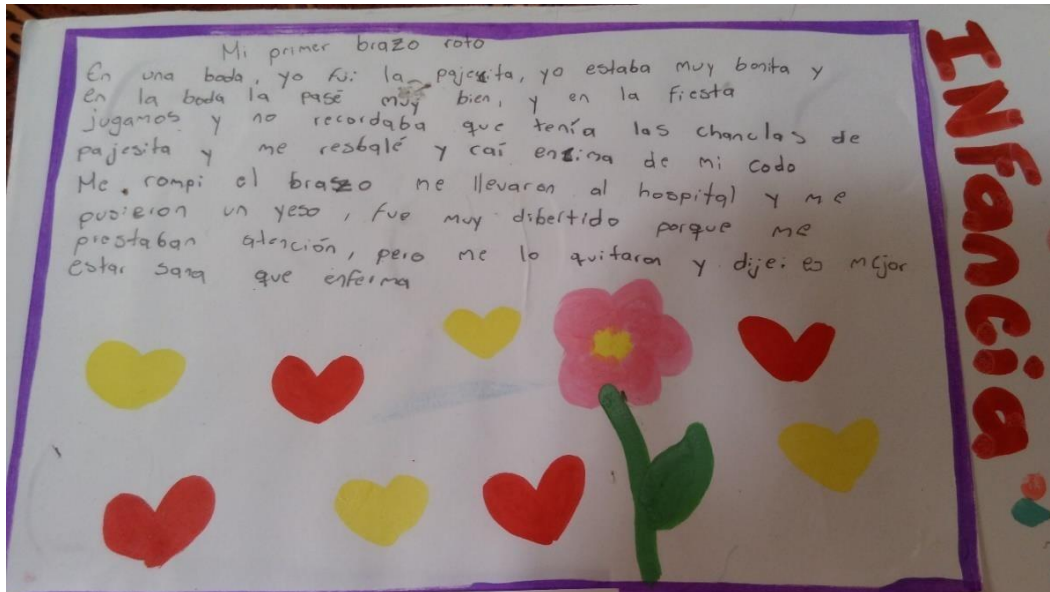 Mi primer brazo roto
En una boda, yo fui la pajesita, yo estaba muy bonita y
en la boda la pasé muy bien, y en la fiesta
jugamos y no recordaba que tenía las chanclas de
pajesita y me resbalé y caí encima de mi codo
Me rompi el brazo me llevaron al hospital y me
pusieron un yeso, fue muy dibertido porque me
prestaban atención, pero me lo quitaron y dije: es mejor
estar sana que enferma
INFancia